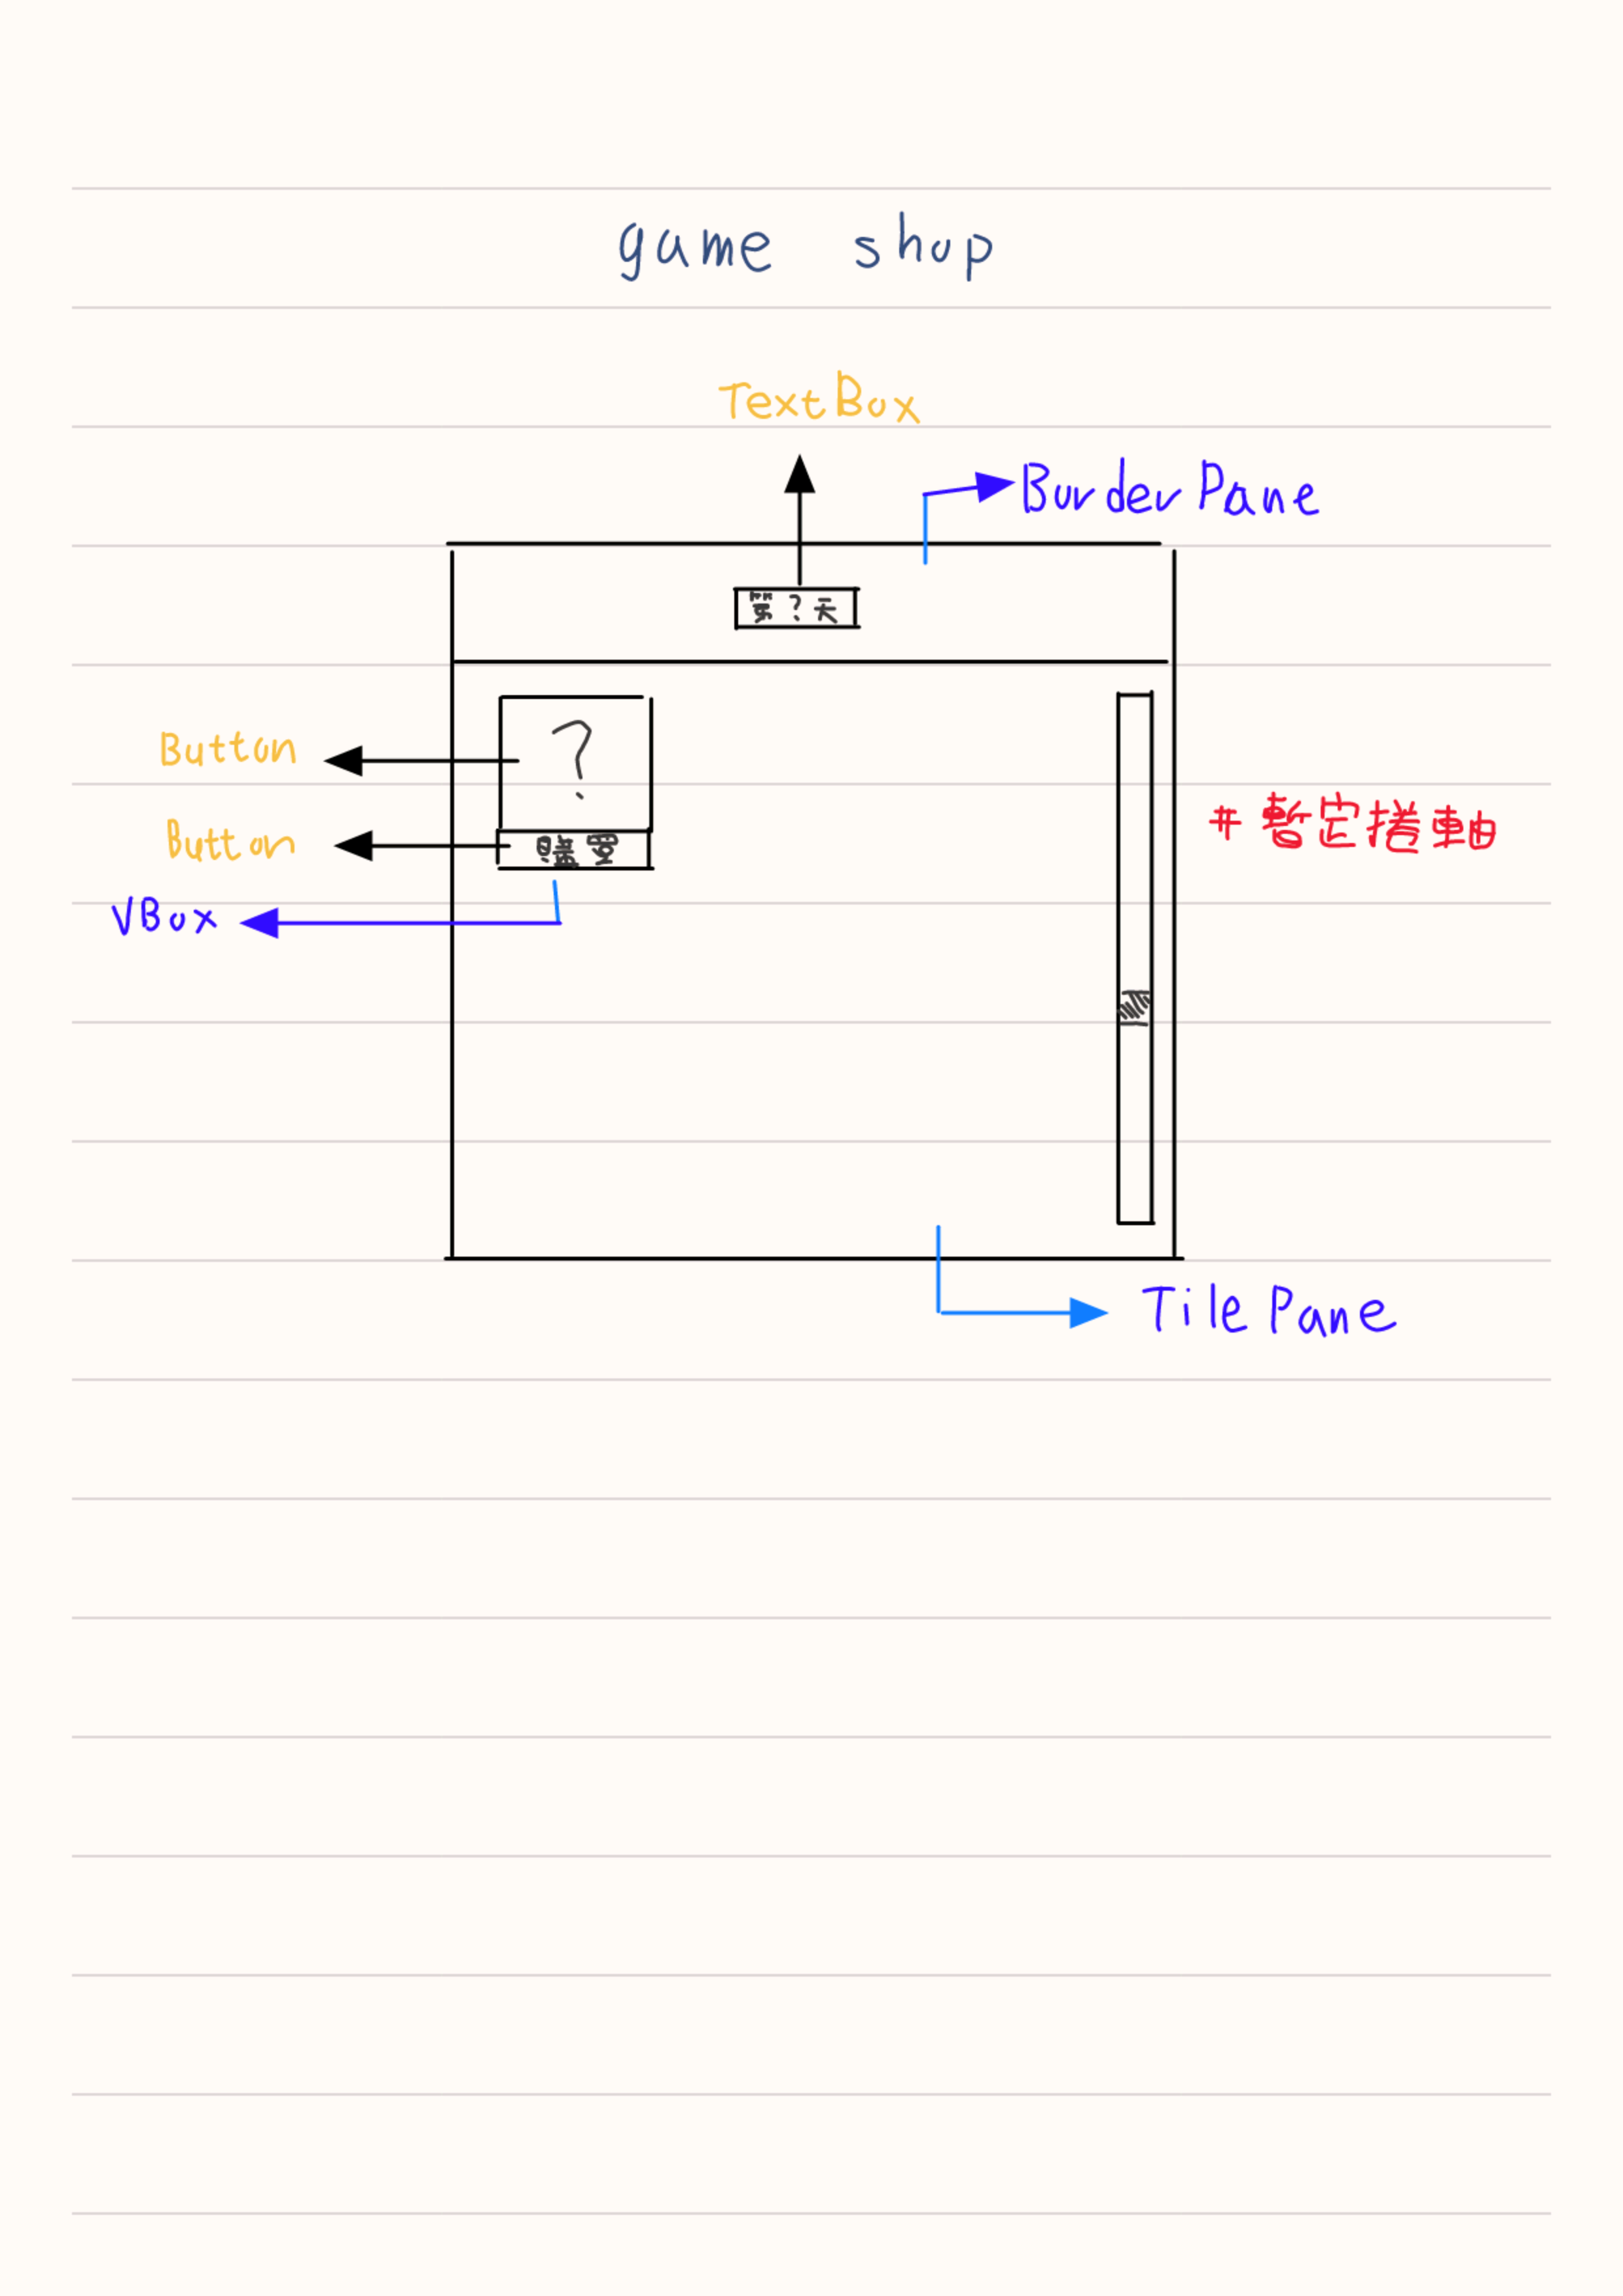 game shop
TextBox
BorderPane
第?天
Button
?
Button
購買
VBox
#暫定捲軸
Tile Pane